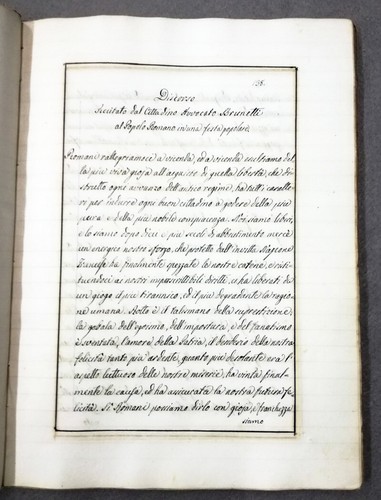 135.
Discorso
Recitato dal Cittadino Avvocato Brunetti
al Popolo Romano in una festa popolare.
Romani rallegriamoci a vicenda, ed a vicenda esultiamo del
la più viva gioja all'acquisto di quella libertà, che di=
strutto ogni avvanzo dell'antico regime, ha tutt'i caratte=
ri per indurre ogni buon cittadino a godere della più
pura e della più nobile compiacenza. Noi siamo liberi,
e lo siamo dopo dieci e più secoli di abbrutimento mercè
un energico nostro sforzo, che protetto dall'invitta Nazione
Francese ha finalmente spezzate le nostre catene, e resti=
tuendoci ai nostri imprescrittibili diritti, ci ha liberati di
un giogo il più tirannico, ed il più degradante la ragio=
ne umana. Rotto è il talismano della superstizione,
la cabala dell'egoismo, dell'impostura, e del fanatismo
è sventata, l'amore della Patria, il desiderio della nostra
felicità tanto più ardente, quanto più desolante era l'
aspetto luttuoso delle nostre miserie, ha vinta final=
mente la causa, ed ha assicurata la nostra futura fe=
licità. Sì Romani possiamo dirlo con gioja, e franchezza
siamo